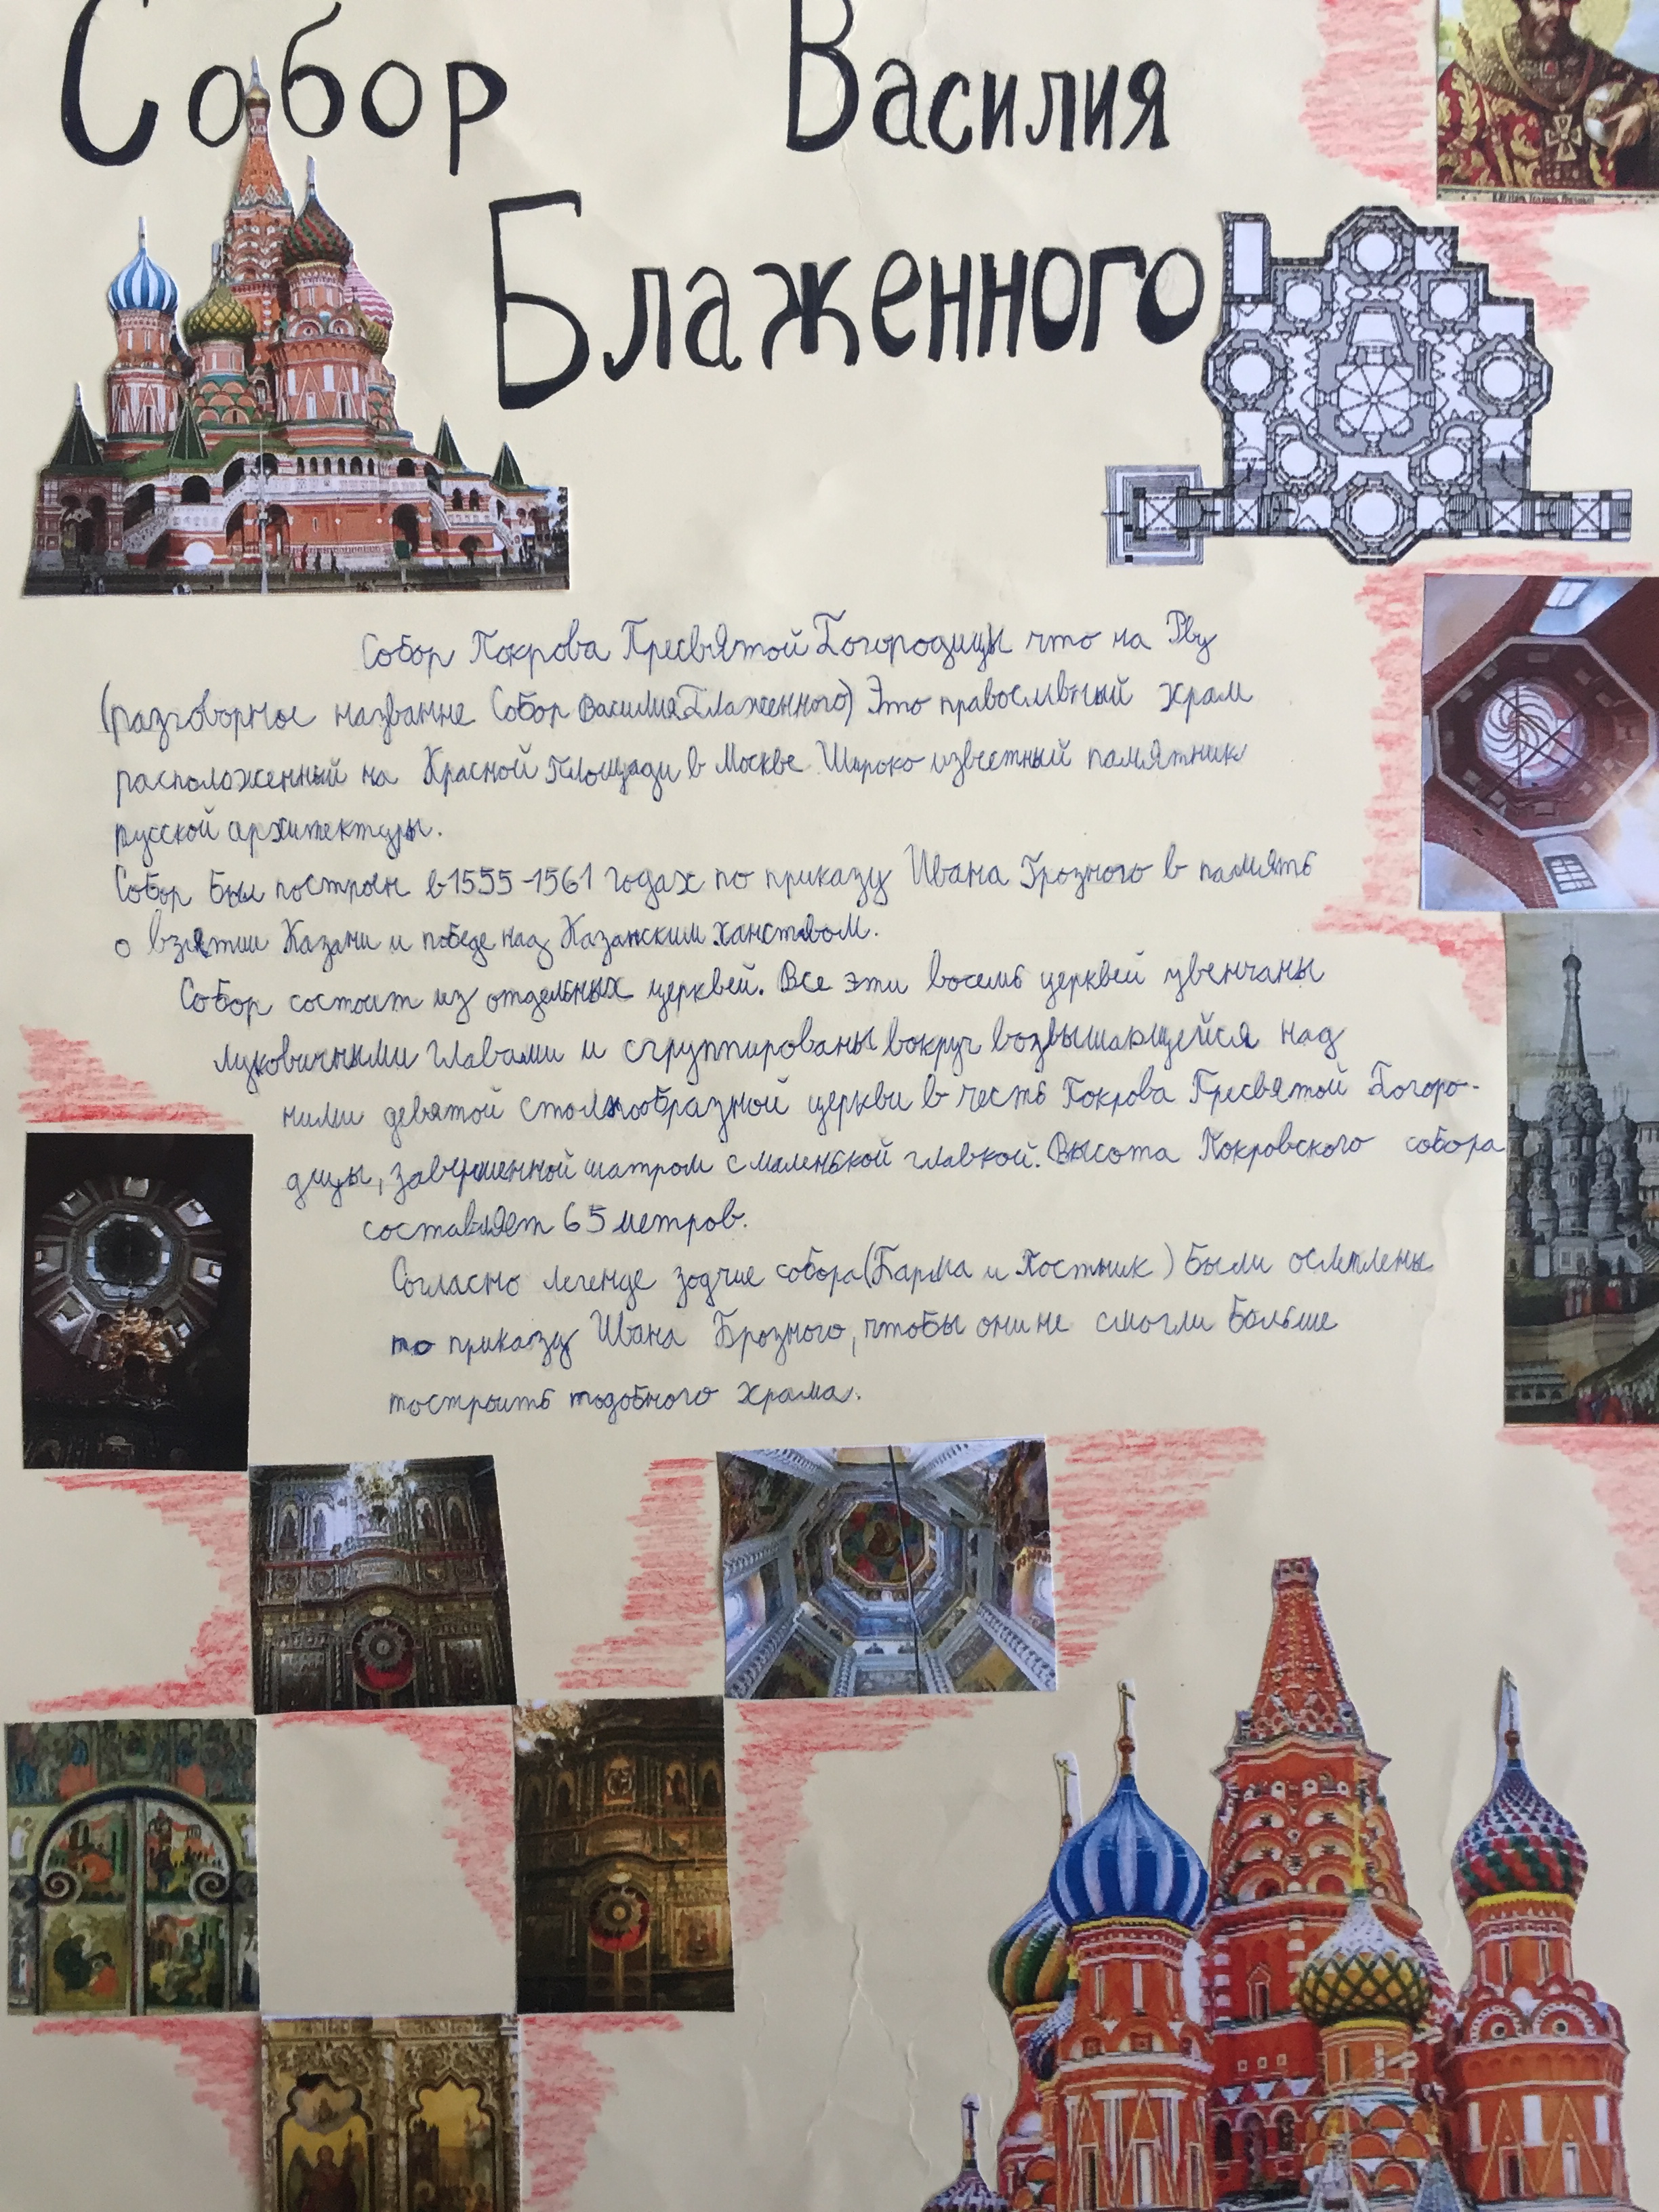 Собор Василия
Блаженного
Собор Покрова Пресвятой Богородицы что на Рву
(разговорное название Собор Василия Блаженного) Это православный храм
расположенный на Красной Площади в Москве. Широко известный памятник
русской архитектуры.
Собор был построен в 1555-1561 годах по приказу Ивана Грозного в память
о взятии Казани и победе над Казанским ханством.
Собор состоит из отдельных церквей. Все эти восемь церквей увенчаны
луковичными главами и сгруппированы вокруг возвышающейся над
ними девятой столпообразной церкви в честь Покрова Пресвятой Богоро-
дицы, завершенной шатром с маленькой главкой. Высота Покровского собора
составляет 65 метров.
Согласно легенде зодчие собора (Барма и Постник) были ослеплены
по приказу Ивана Грозного, чтобы они не смогли больше
построить подобного храма.